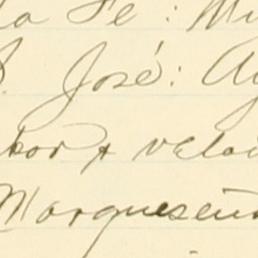 la Fe: Mi
S. José: A
bor & vela
Marqueseñ